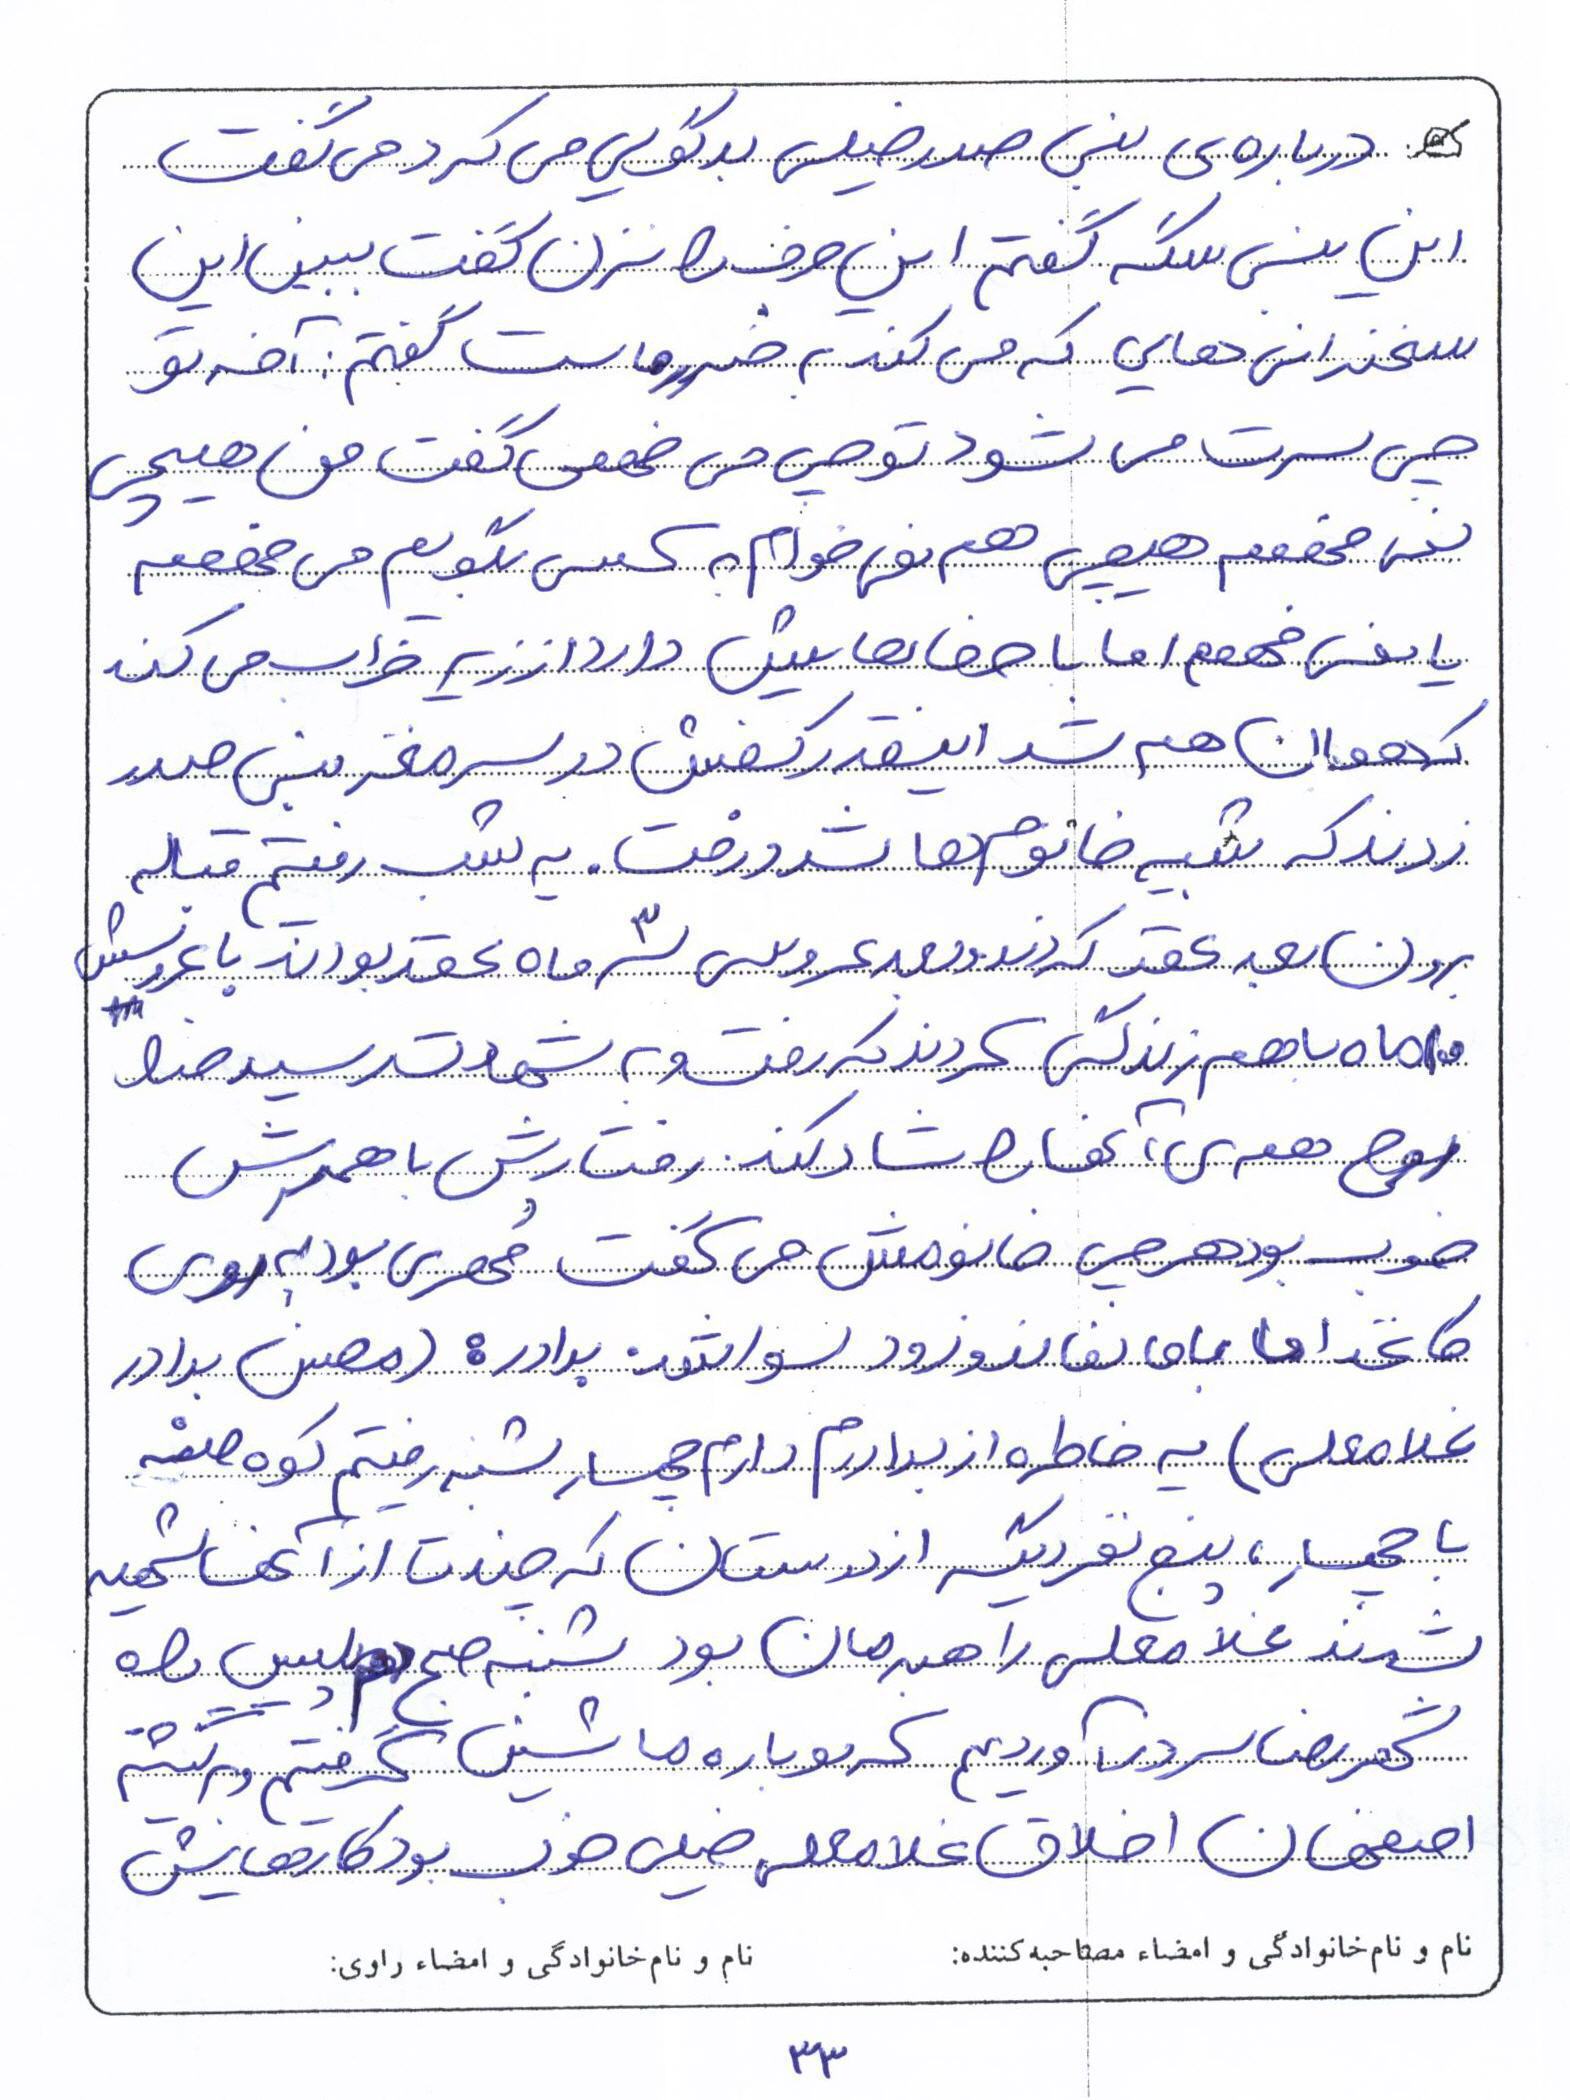 درباره‌ی بنی صدر خیلی بدگویی می کرد می گفت
این بنی سگه گفتم این حرف را نزن گفت ببین این
سخنرانی هایی که می کند به ضرر ماست گفتم: آخه تو
چی سرت می شود تو چی می فهمی گفت من هیچی
نمی فهمم هیچی هم نمی خوام به کسی بگویم می فهمم
یا نمی فهمم اما با حرفهایش دارد از زیر خراب می کند
که همان هم شد اینقدر کفش در سر مغز بنی صدر
زدند که شبیه خانوم ها شد و رفت. یه شب رفتیم قباله
برون بعد عقد کردند و بعد عروسی ۳ ماه عقد بودند با عروسش
ماه با هم زندگی کردند که رفت و به شهادت رسید خدا
روح همه‌ی آنها را شاد کند. رفتارش با همسرش
خوب بود هر چی خانومش می گفت مُهری بود به روی
کاغذ اما با ما نماند و زود برادر: (محسن برادر
غلامعلی) یه خاطره از برادرم دارم چهارشنبه رفتیم کوه صفه
با چهار، پنج نفر دیگه از دوستان که چند تا از آنها شهید
شدند غلامعلی راهبرمان بود شنبه صبح پلیس راه
شهررضا سر درآوردیم که دوباره ماشین گرفتیم برگشتیم
اصفهان اخلاق غلامعلی خیلی خوب بود کارهایش
نام و نام خانوادگی و امضاء مصاحبه کننده: نام و نام خانوادگی و امضاء راوی:
۳۳